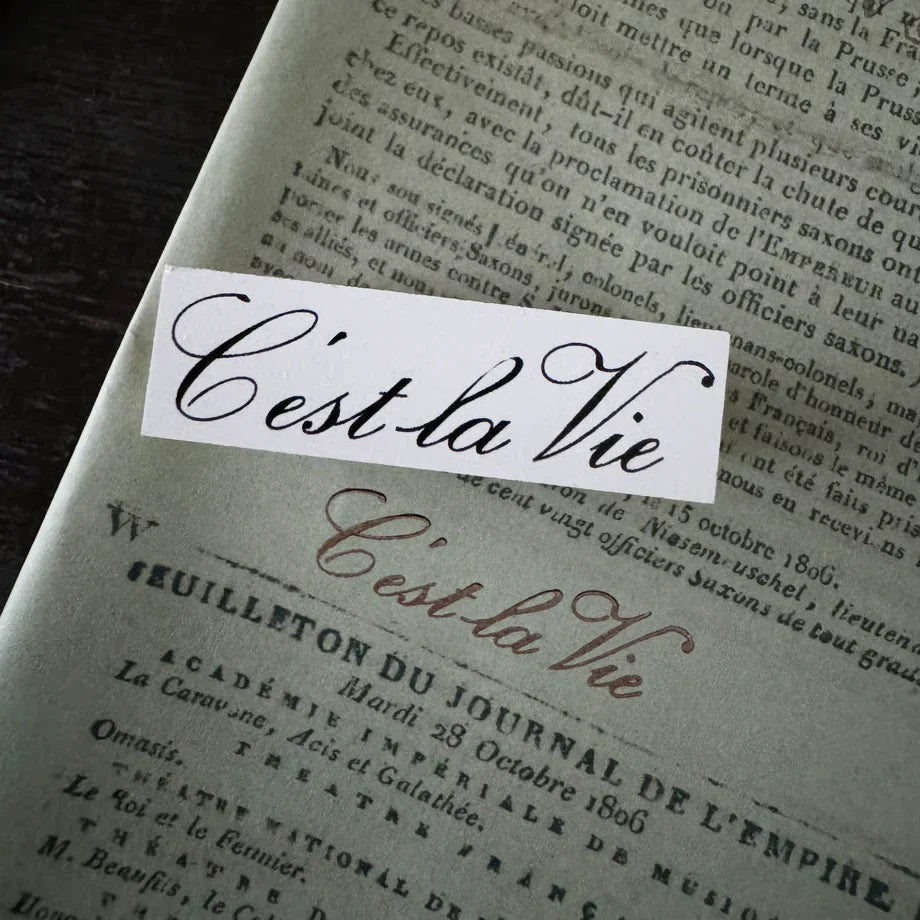 sans la Fra
on par la Prusse
mes que lorsque la Pruss
loit mettre un terme à ses vi
es basses passions qui agitent plusieurs cour
ce repos existât, dût-il en coûter la chute de qu
Effectivement, tous les prisonniers saxons ont
chez eux, avec la proclamation de l'EMPEREUR au
des assurances qu'on n'en vouloit point à leur na
joint la déclaration signée par les officiers saxons.
Nous sou signés, colonels, lieu nans-colonels, ma
taines et officiers Saxons, jurons parole d'honneur de
porter les armes contre Français, roi d'
ses alliés, et et faisons le même
au nom de nt été faits pris
avec nous en recev ns
le 15 octobre 1806.
de Niesem uschel, lieuten
de cent vingt officiers saxons de tout grad
C'est la Vie
C'est la Vie
W
FEUILLETON DU JOURNAL DE L'EMPIRE
Mardi 28 Octobre 1806
ACADÉMIE IMPÉRIALE DE MUSIQ
La Caravane, Acis et Galathée.
THEATRE FRANÇ
Omasis.
THÉATRE NATIONAL DE
Le Roi et le Fermier.
THÉATRE D
M. Beaufils, le Co
TH